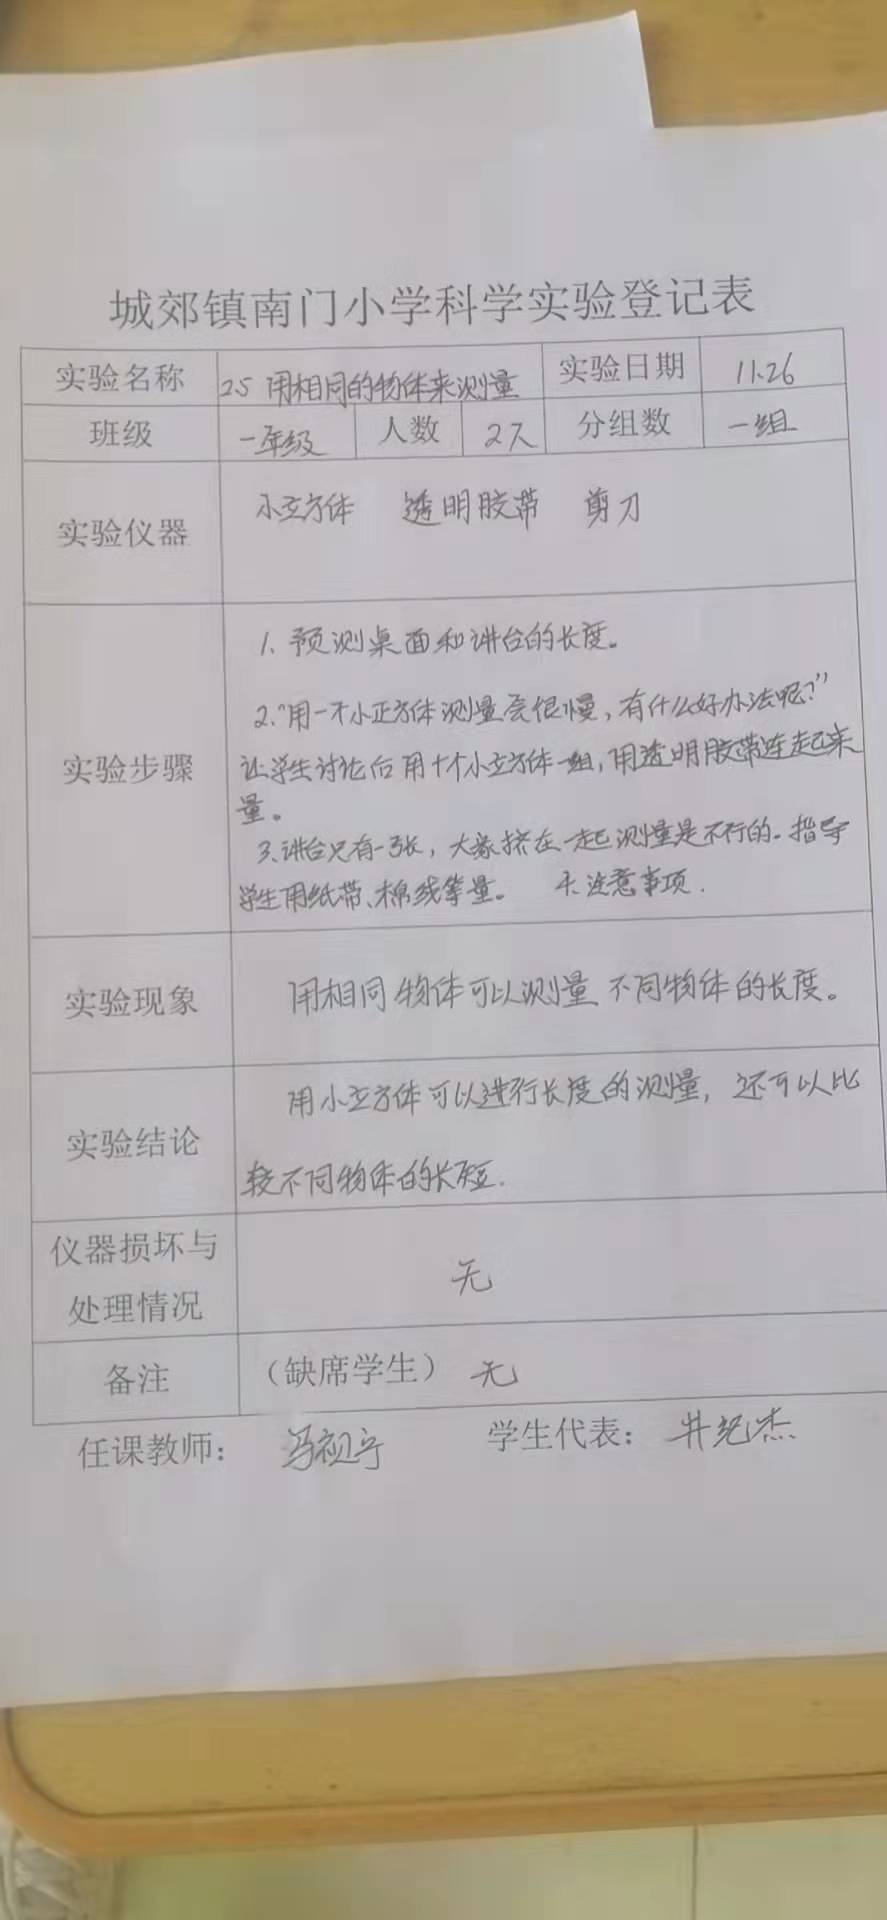 城郊镇南门小学科学实验登记表
实验名称 2.5 用相同的物体来测量 实验日期 11.26
班级 一年级 人数 2人 分组数 一组
实验仪器 小立方体 透明胶带 剪刀
1. 预测桌面和讲台的长度。
2."用一个小正方体测量会很慢,有什么好办法呢?"
实验步骤 让学生讨论后用十个小立方体一组,用透明胶带连起来
量。
3.讲台只有一张,大家挤在一起测量是不行的。指导
学生用纸带、棉线等量。 4.注意事项.
实验现象 用相同物体可以测量不同物体的长度。
用小立方体可以进行长度的测量,还可以比
实验结论
较不同物体的长短.
仪器损坏与
处理情况 无
备注 (缺席学生) 无
任课教师: 学生代表: